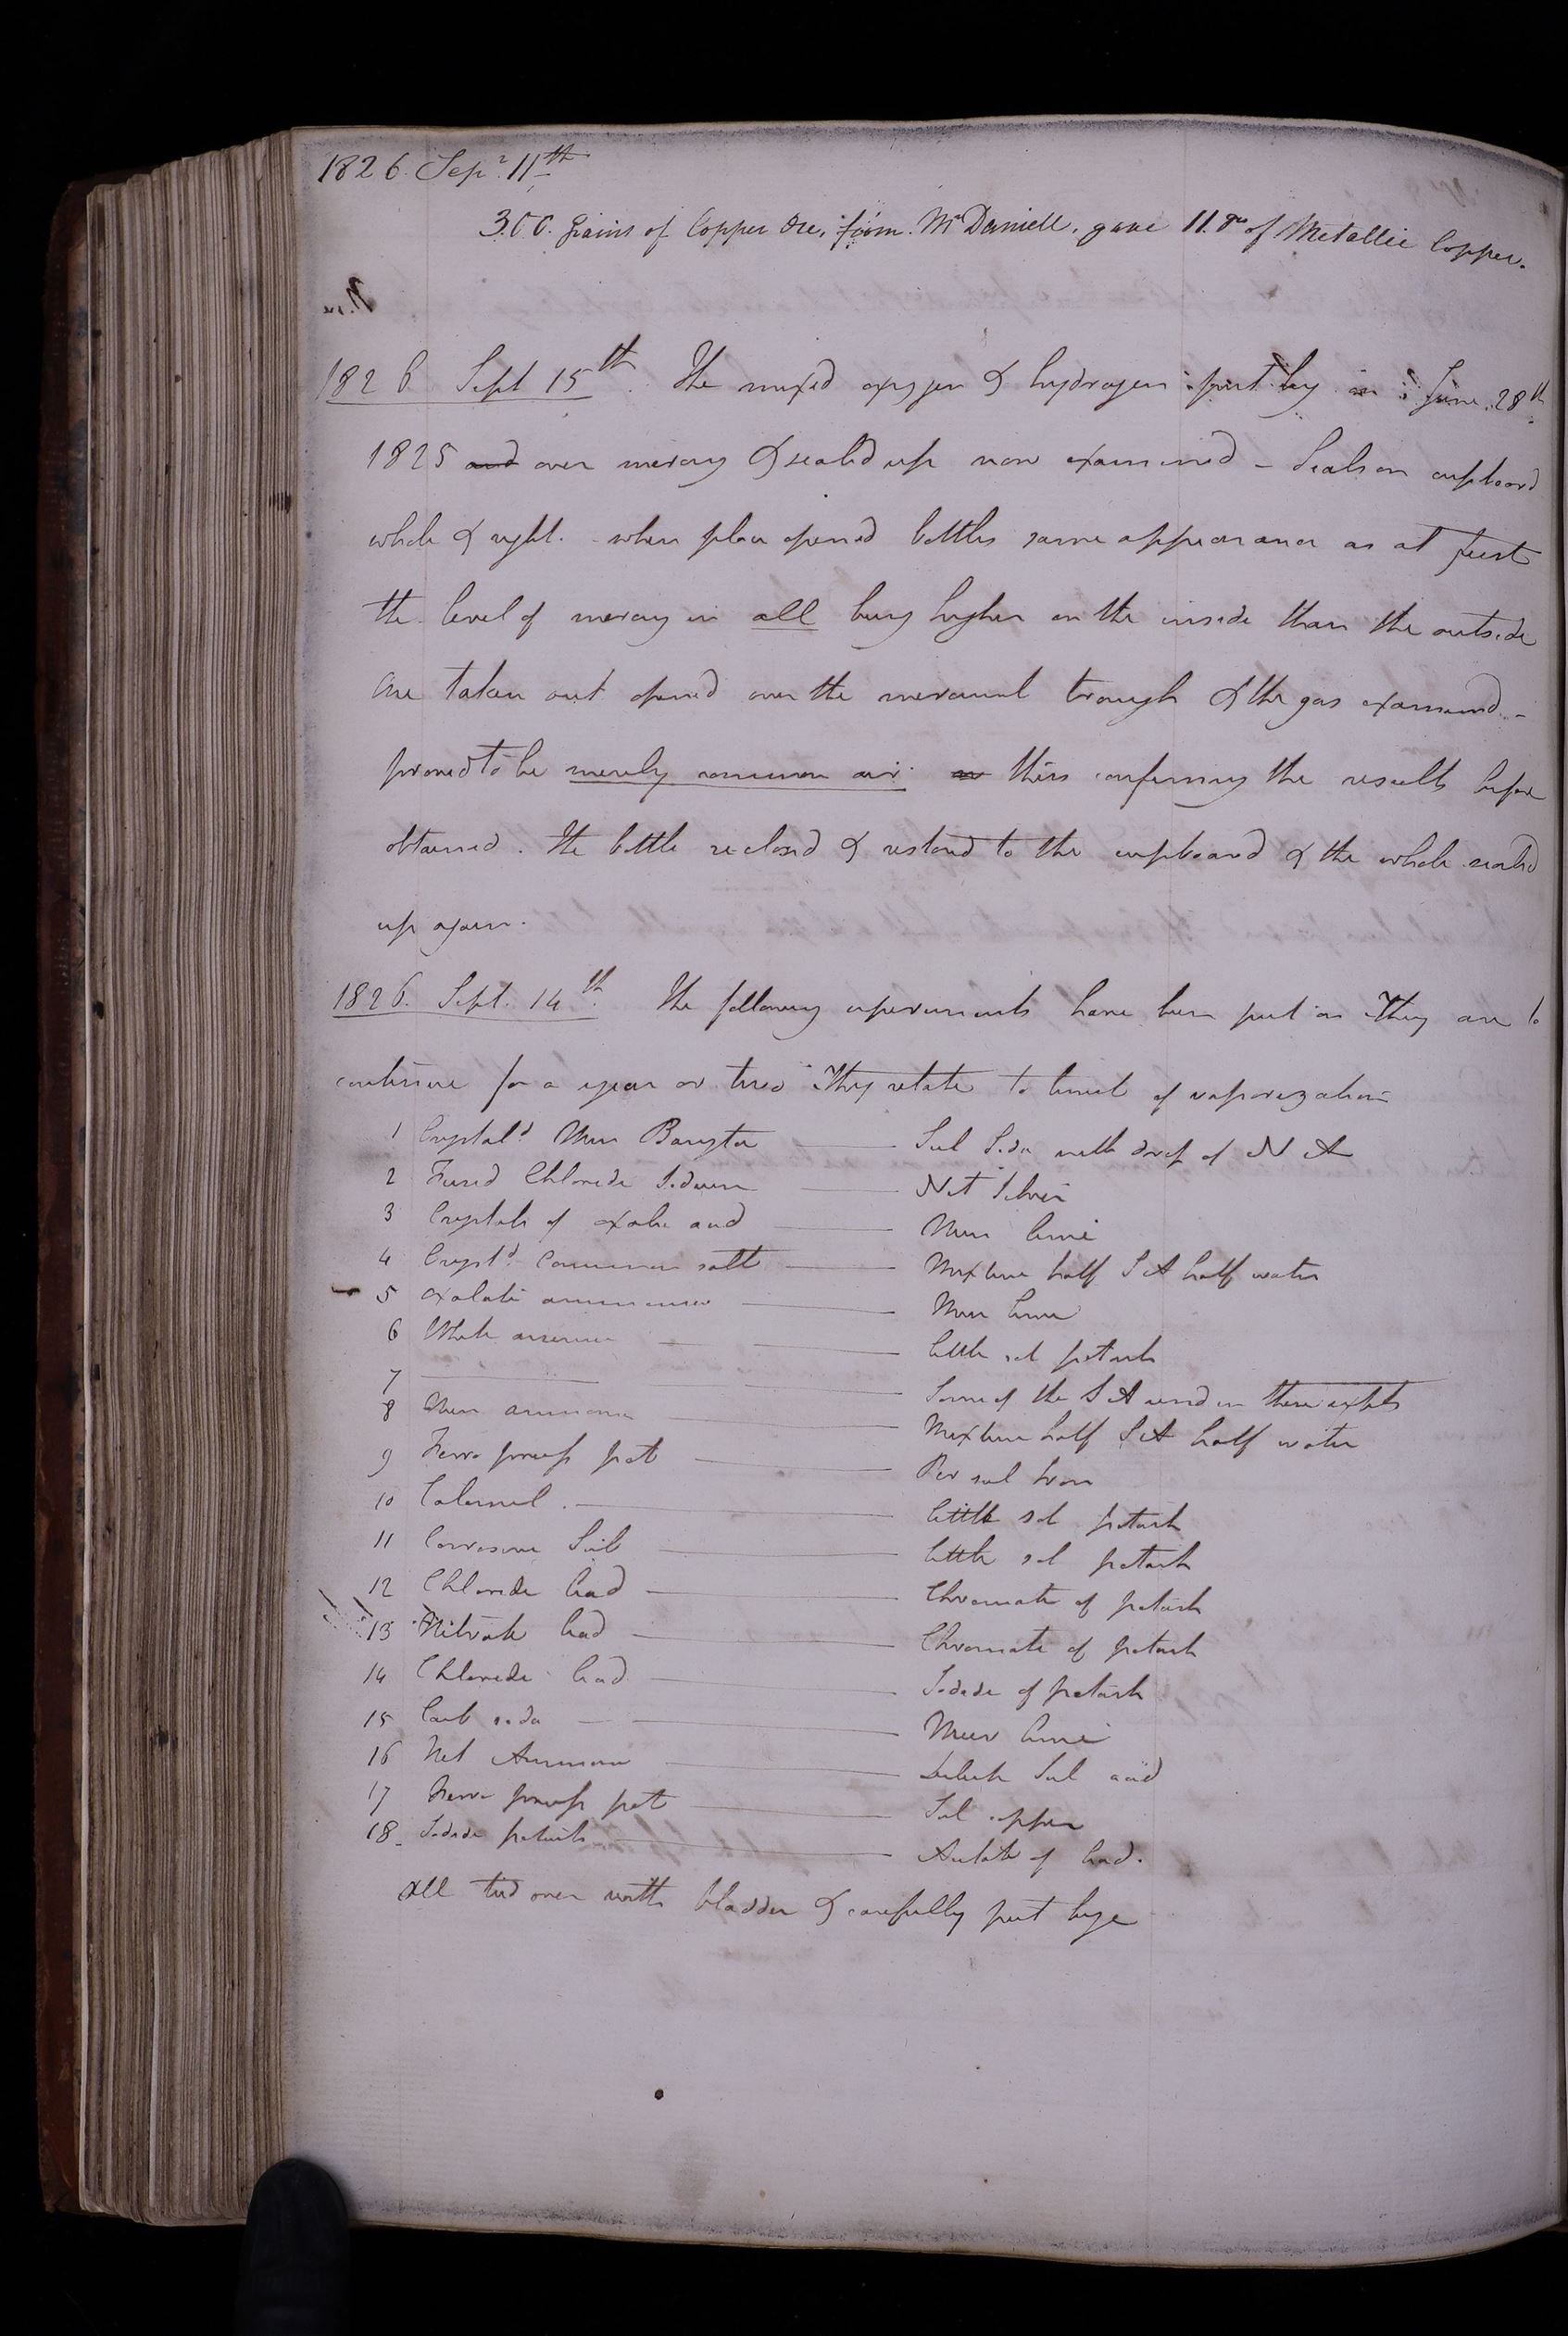 1826. Sepr. 11th
300. Grains of Copper Ore, from Mr Daniell, gave 11. grs of Metallic Copper.
1826 Sept 15th. The mixed oxygen & hydrogen put by in June 28th
1825 and over mercury & sealed up now examined - Seals on cupboard
whole & right. when place opened bottles same appearance as at first
the level of mercury in all being higher on the inside than the outside
One taken out opened over the mercurial trough & the gas examined -
proved to be merely common air. this confirming the results before
obtained. The bottle reclosed & restored to the cupboard & the whole sealed
up again.
1826. Sept. 14th. The following experiments have been put on They are to
continue for a year or two They relate to limit of vaporization
1 Crystald. Mur Baryta — Sul Soda with drop of N A
2 Fused Chloride Sodium — Nit Silver
3 Crystals of oxalic acid — Mur lime
4 Crystd. common salt — Mixture half S A half water
5 Oxalate ammonia — Mur lime
6 White arsenic — little sol potash
7 — Some of the S A used in these expts
8 Mur ammonia — Mixture half S A half water
9 Ferro prussi pot — Per sul Iron
10 Calomel. — little sol potash
11 Corrosive Sub — little sol potash
12 Chloride lead — Chromate of potash
13 Nitrate lead — Chromate of potash
14 Chloride lead — Iodide of potash
15 Carb soda — Mur lime
16 Nit Ammonia — Dilute Sul acid
17 Ferro prussi pot — Sul copper
18. Iodide potash — Acetate of lead.
All tied over with bladder & carefully put bye